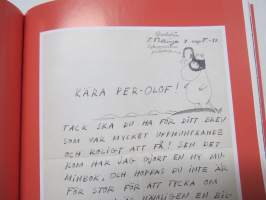 KÄRA PER-OLOF!
TACK SKA DU HA FÖR DITT BREV
SOM VAR MYCKET UPPMUNTRANDE
OCH ROLIGT ATT FÅ! SEN DET
KOM HAR JAG GJORT EN NY MU-
MINBOK, OCH HOPPAS DU INTE ÄR
FÖR STOR FÖR ATT TYCKA OM
NÄMLIGEN EN